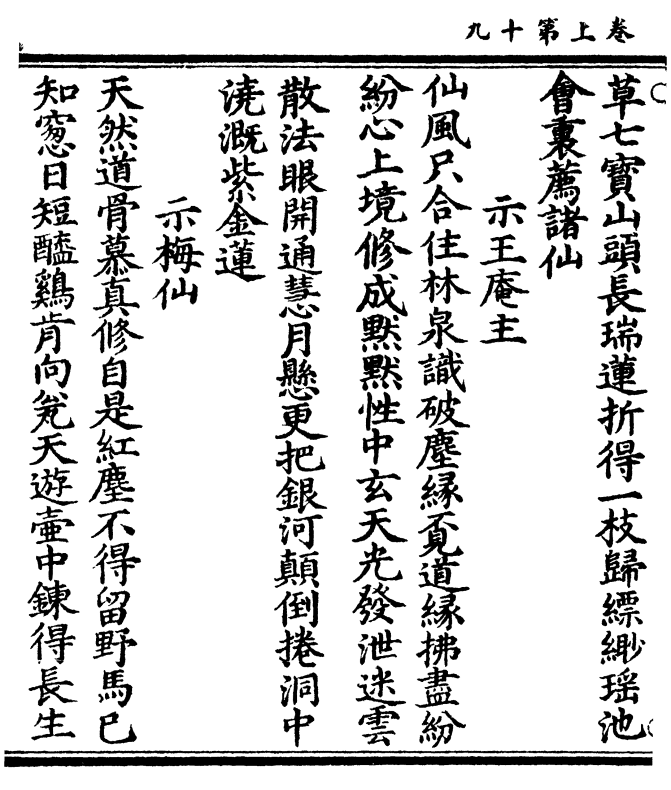 卷上第十九
草七寶山頭長瑞蓮折得一枝歸縹緲瑶池
會裏薦諸仙
示王庵主
仙風只合住林泉識破塵縁覔道縁拂盡紛
紛心上境修成黙黙性中玄天光發泄迷雲
散法眼開通慧月懸更把銀河顛倒捲洞中
澆溉紫金蓮
示梅仙
天然道骨慕真修自是紅塵不得留野馬已
知窓日短醯鷄肯向瓮天遊壷中鍊得長生